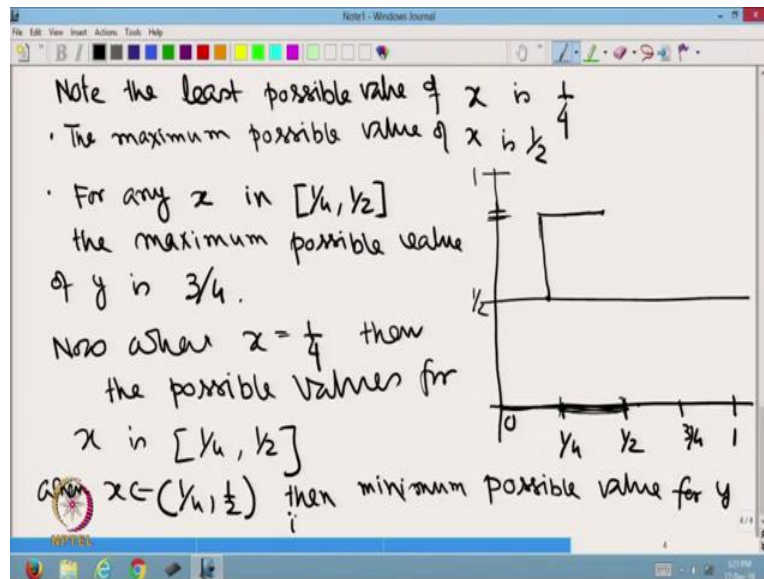 Note1 - Windows Journal
File Edit View Insert Actions Tools Help
B I
Note the least possible value of x is 1/4
· The maximum possible value of x is 1/2
· For any x in [1/4, 1/2]
the maximum possible value
of y is 3/4.
Now when x = 1/4 then
the possible values for
x is [1/4, 1/2]
when x ∈ (1/4, 1/2) then minimum possible value for y
i
1
1/2
0 1/4 1/2 3/4 1
NPTEL
4/4
4
5:21 PM